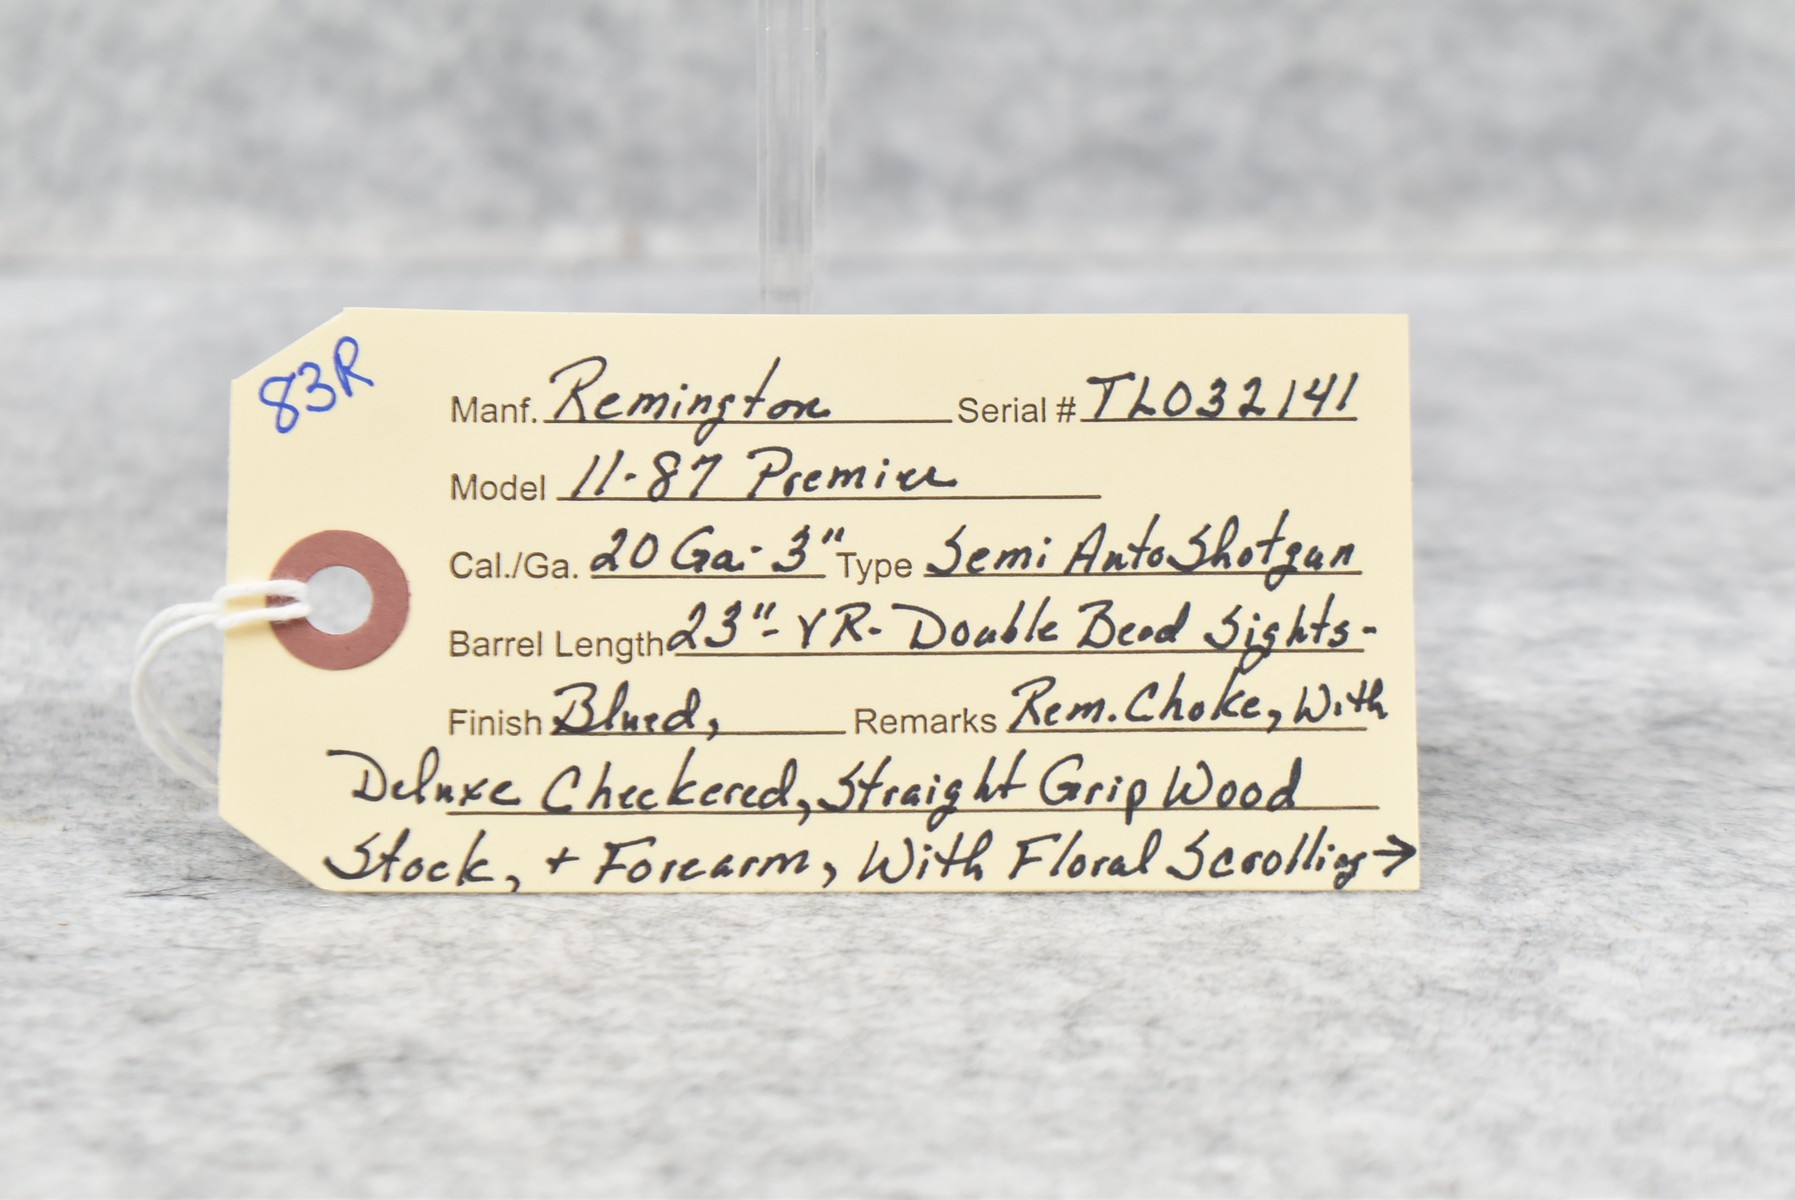 83R
Manf. Remington Serial # TL032141
Model 11-87 Premier
Cal./Ga. 20 Ga. 3" Type Semi Auto Shotgun
Barrel Length 23"- VR- Double Bead Sights-
Finish Blued, Remarks Rem. Choke, With
Deluxe Checkered, Straight Grip Wood
Stock, + Forearm, With Floral Scrolling →